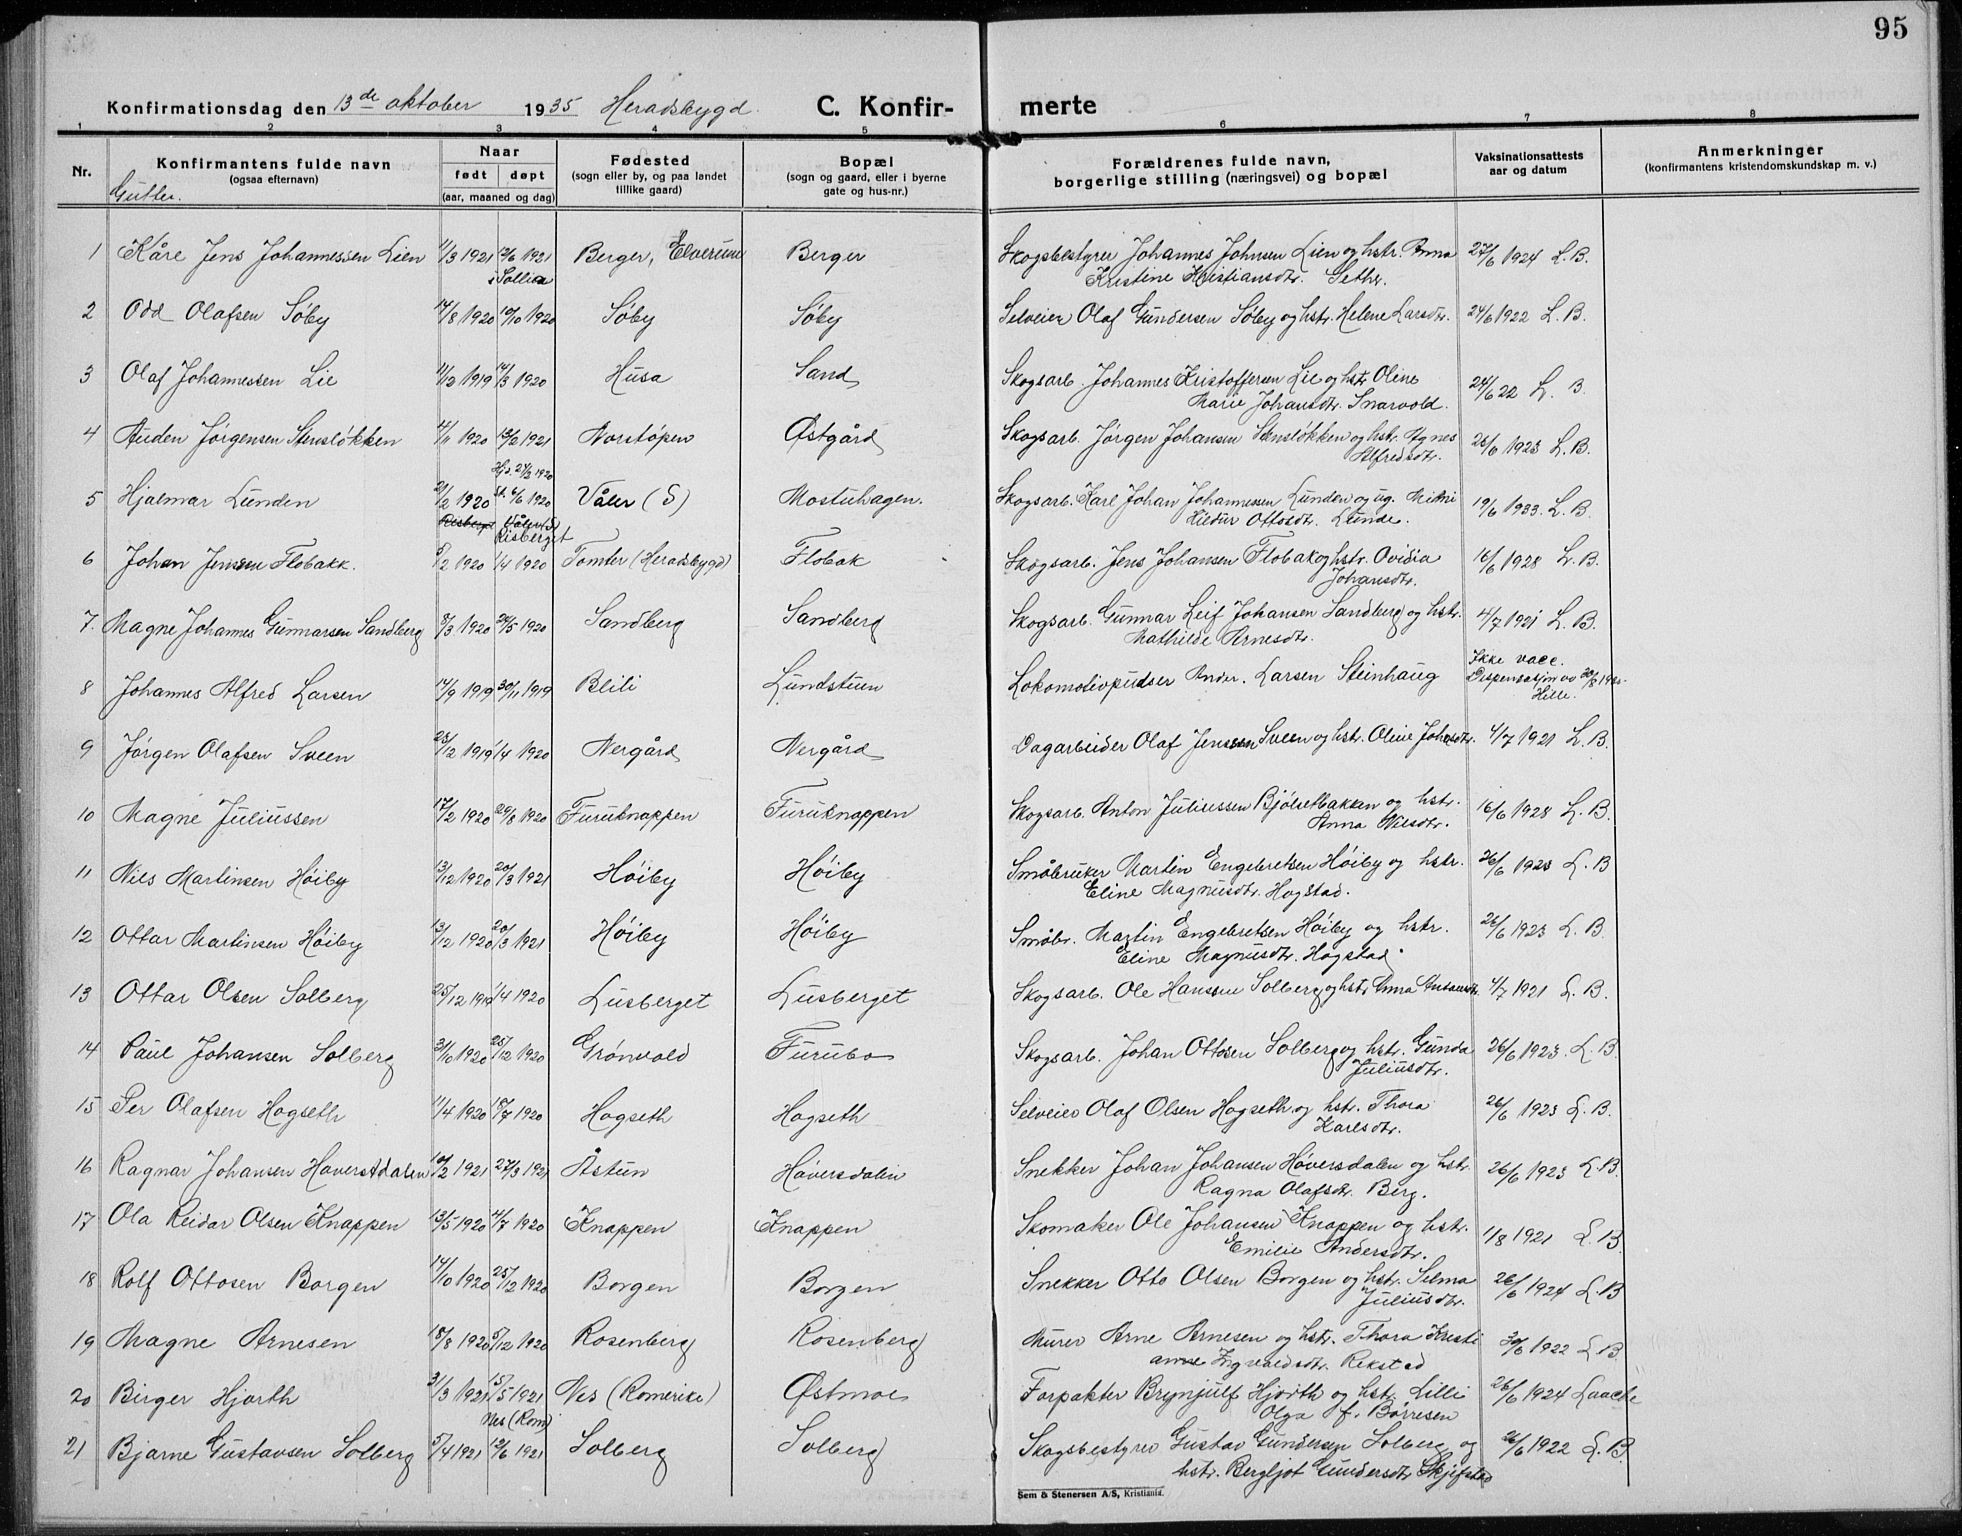 95
Konfirmationsdag den 13de oktober 1935 Heradsbygd. C. Konfir- merte
1 2 3 4 5 6 7 8
Nr. Konfirmantens fulde navn (ogsaa efternavn) Naar født døpt (aar, maaned og dag) Fødested (sogn eller by, og paa landet tillike gaard) Bopæl (sogn og gaard, eller i byerne gate og hus-nr.) Forældrenes fulde navn, borgerlige stilling (næringsvei) og bopæl Vaksinationsattests aar og datum Anmerkninger (konfirmantens kristendomskundskap m. v.)
Gutter.
1 Kåre Jens Johannessen Lien 11/3 1921 12/6 1921 Berger, Elverum Berger Skogsbestyrer Johannes Johnsen Lien og hstr. Anna 27/6 1924 L. B.
i Sollia Kristine Kristiansdtr. Sether.
2 Odd Olafsen Søby 14/8 1920 10/10 1920 Søby Søby Selveier Olaf Gundersen Søby og hstr. Helene Larsdtr. 24/6 1922 L. B.
3 Olaf Johannessen Lie 11/12 1919 14/3 1920 Husa Sand Skogsarb. Johannes Kristoffersen Lie og hstr. Oline 24/6 22 L. B
Marie Johansdtr. Snarvold.
4 Auden Jørgensen Stensløkken 4/11 1920 1921 Norstøpen Østgård Skogsarb. Jørgen Johansen Stensløkken og hstr. Agnes 1923 L. B.
Alfredsdtr.
Hjd. 21/2 1920
5 Hjalmar Lunden 21/2 1920 St. 6/6 1920 Våler (S) Mostuhagen. Skogsarb. Karl Johan Johannessen Lunden og ug. Minni 19/6 1933. L. B.
Risberget Våler (S) Hildur Ottosdtr. Lunde.
Risberget
6 Johan Jenssen Flobakk. 5/2 1920 1/4 1920 Tomter (Heradsbygd) Flobak Skogsarb. Jens Johansen Flobak og hstr. Ovidia 16/6 1928 L. B.
Johansdtr.
7. Magne Johannes Gunnarsen Sandberg 8/3 1920 24/5 1920 Sandberg Sandberg Skogsarb. Gunnar Leif Johansen Sandberg og hstr. 4/7 1921 L. B.
Mathilde Arnesdtr.
8 Johannes Alfred Larsen 14/9 1919 30/11 1919 Blili Lundstuen Lokomotivpudser Ander. Larsen Steinhaug Ikke vacc.
Dispensasjon av
Hille.
9 Jørgen Olafsen Sveen 23/12 1919 1/4 1920 Nergård Nergård Dagarbeider Olaf Jenssen Sveen og hstr. Oline Johsdtr. 4/7 1921 L. B.
10 Magne Juliussen 17/2 1920 29/8 1920 Furuknappen Furuknappen Skogsarb. Anton Juliussen Bjølsetbakken og hstr. 16/6 1928 L. B.
Anna Nilsdtr.
11 Nils Martinsen Høiby 13/12 1920 20/3 1921 Høiby Høiby Småbruker Martin Engebretsen Høiby og hstr. 26/6 1923 L. B
Eline Magnusdtr. Hogstad.
12 Ottar Martinsen Høiby 13/12 1920 20/3 1921 Høiby Høiby Småbr. Martin Engebretsen Høiby og hstr. 26/6 1923 L. B.
Eline Magnusdtr. Hogstad.
13 Ottar Olsen Solberg 25/12 1919 1/4 1920 Lusberget Lusberget Skogsarb. Ole Hanssen Solberg og hstr. Anna Antonsdtr. 4/7 1921 L. B.
14 Paul Johansen Solberg 31/10 1920 25/12 1920 Grønvold Furubo Skogsarb. Johan Ottosen Solberg og hstr. Gunda 26/6 1923. L. B.
Juliusdtr.
15 Per Olafsen Hagseth 11/4 1920 18/7 1920 Hagseth Hagseth Selveier Olaf Olsen Hagseth og hstr. Thora 26/6 1923 L. B.
Karlsdtr.
16 Ragnar Johansen Haverstdalen 10/2 1921 27/3 1921 Åstun Høversdalen Snekker Johan Johansen Høversdalen og hstr. 26/6 1923 L. B.
Ragna Olafsdtr. Berg.
17 Ola Reidar Olsen Knappen 13/5 1920 4/7 1920 Knappen Knappen Skomaker Ole Johansen Knappen og hstr. 1/8 1921 L. B.
Emilie Andersdtr.
18 Rolf Ottosen Borgen 14/10 1920 25/12 1920 Borgen Borgen Snekker Otto Olsen Borgen og hstr. Selma 26/6 1924 L. B
Juliusdtr.
19 Magne Arnesen 18/8 1920 5/12 1920 Rosenberg Rosenberg Murer Arne Arnesen og hstr. Thora Kristi 30/6 1922 L. B.
anne Ingvaldsdtr. Rekstad
20 Birger Hjorth 31/3 1921 15/5 1921 Nes (Romerike) Østmoe Forpakter Brynjulf Hjorth og hst. Lilli 26/6 1924 Laache
Nes (Rom) Olga f. Børresen
21 Bjarne Gustavsen Solberg 5/4 1921 12/6 1921 Solberg Solberg Skogsbestyrer Gustav Gundersen Solberg og 26/6 1922 L. B.
hstr. Bergljot Gundersdtr. Skjefstad
Sem & Stenersen A/S, Kristiania.